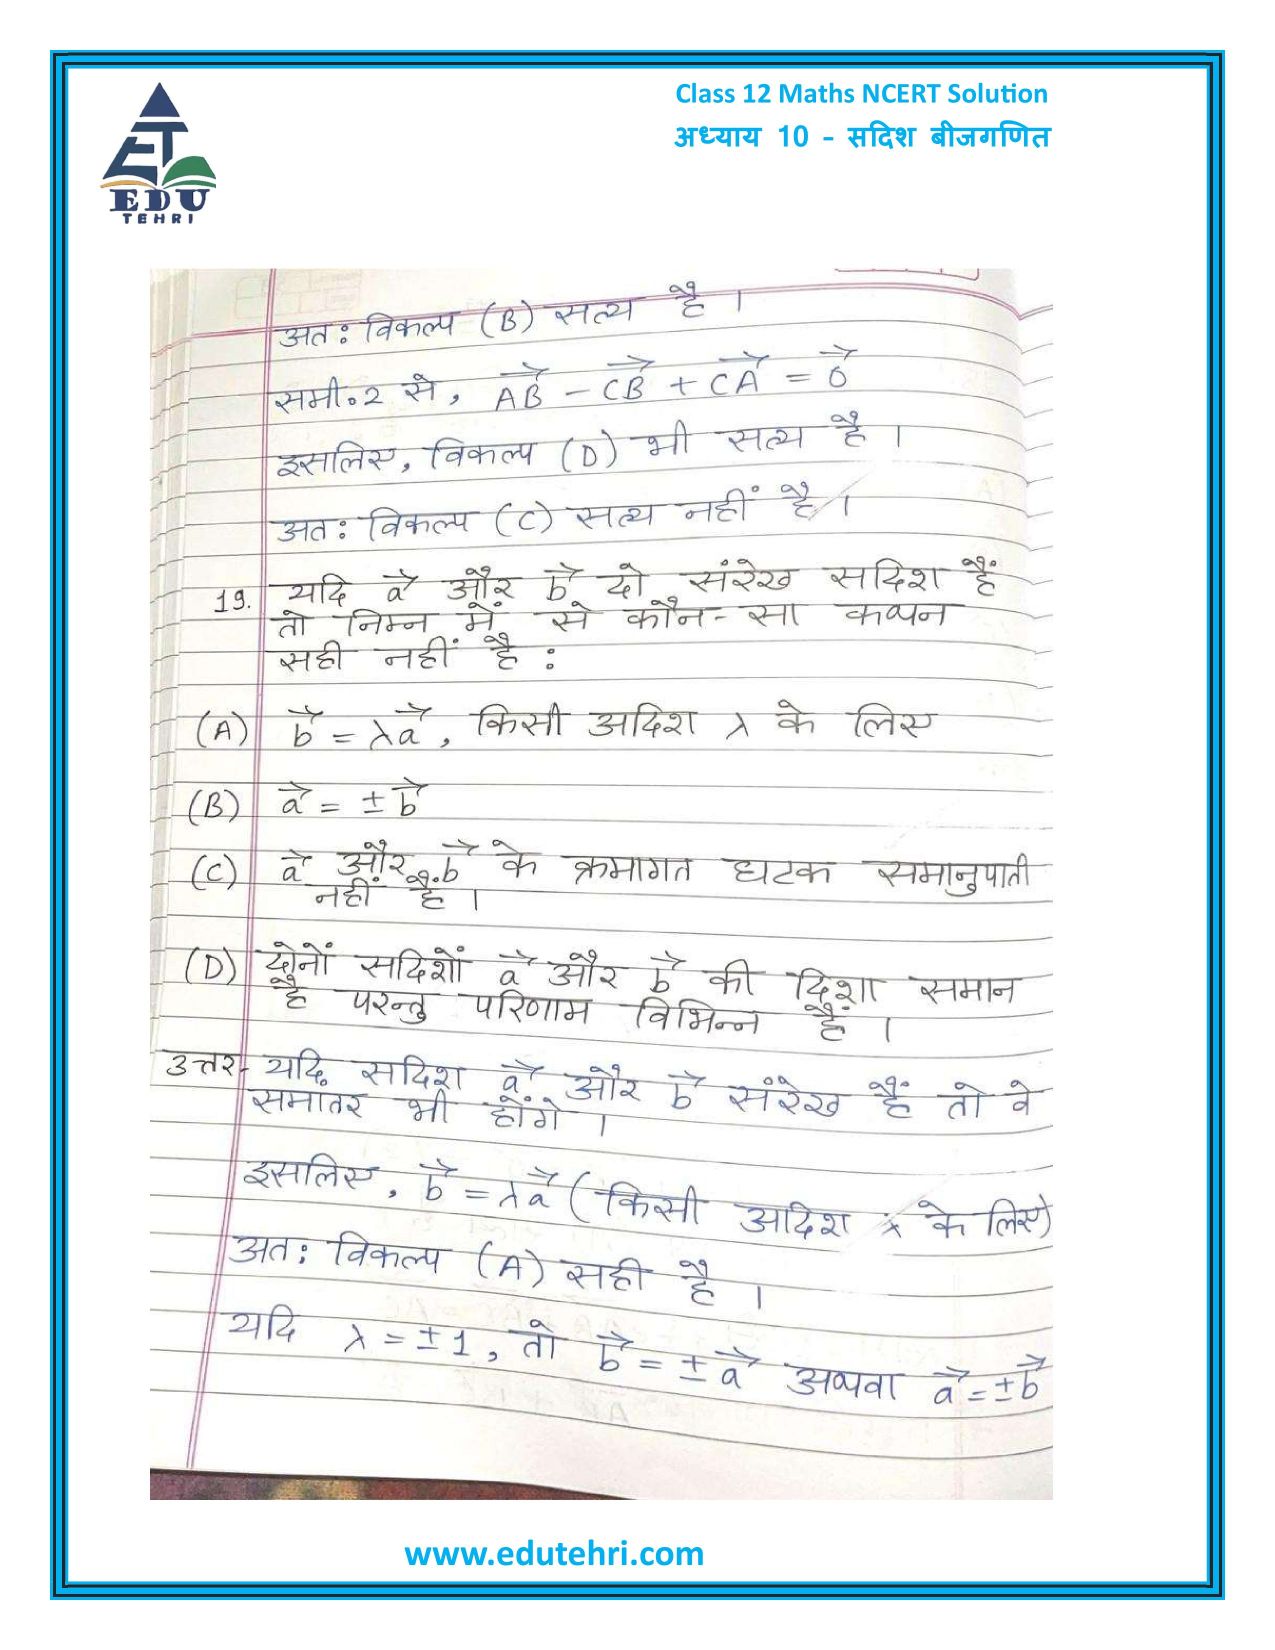 Class 12 Maths NCERT Solution
अध्याय 10 - सदिश बीजगणित
EDU
TEHRI
अतः विकल्प (B) सत्य है ।
समी०2 से, AB⃗ - CB⃗ + CA⃗ = 0⃗
इसलिए, विकल्प (D) भी सत्य है ।
अतः विकल्प (C) सत्य नहीं है ।
19. यदि a⃗ और b⃗ दो संरेख सदिश हैं
तो निम्न में से कौन-सा कथन
सही नहीं है :
(A) b⃗ = λa⃗, किसी अदिश λ के लिए
(B) a⃗ = ± b⃗
(C) a⃗ और b⃗ के क्रमागत घटक समानुपाती
नहीं हैं ।
(D) दोनों सदिशों a⃗ और b⃗ की दिशा समान
है परन्तु परिणाम विभिन्न हैं ।
उत्तर- यदि सदिश a⃗ और b⃗ संरेख हैं तो वे
समातर भी होंगे ।
इसलिए, b⃗ = λa⃗ (किसी अदिश λ के लिए)
अतः विकल्प (A) सही है ।
यदि λ = ±1, तो b⃗ = ± a⃗ अथवा a⃗ = ± b⃗
www.edutehri.com